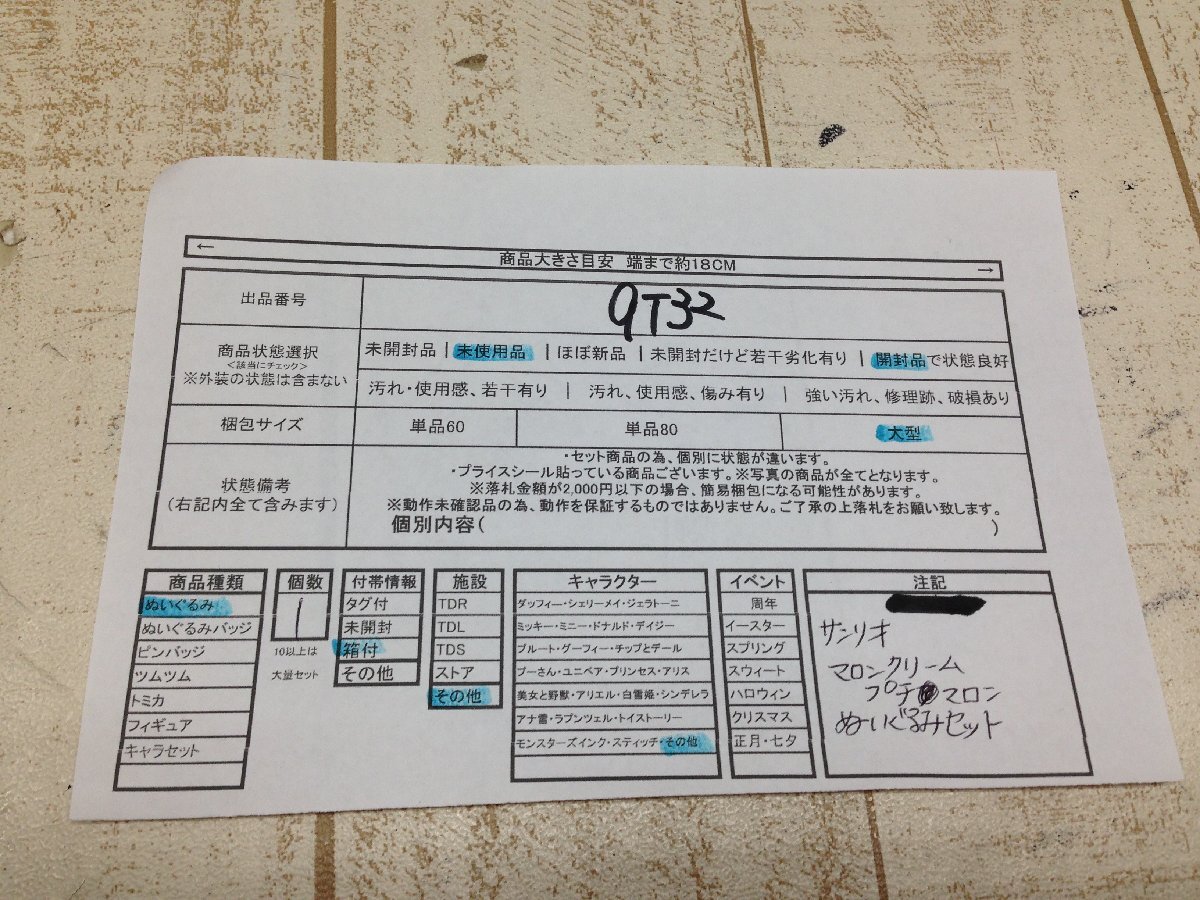 ← 商品大きさ目安 端まで約18CM →
出品番号 9T32
商品状態選択
<該当にチェック>
※外装の状態は含まない
未開封品 | 未使用品 | ほぼ新品 | 未開封だけど若干劣化有り | 開封品で状態良好
汚れ・使用感、若干有り | 汚れ、使用感、傷み有り | 強い汚れ、修理跡、破損あり
梱包サイズ 単品60 単品80 大型
状態備考
(右記内全て含みます)
・セット商品の為、個別に状態が違います。
・プライスシール貼っている商品ございます。※写真の商品が全てとなります。
※落札金額が2,000円以下の場合、簡易梱包になる可能性があります。
※動作未確認品の為、動作を保証するものではありません。ご了承の上落札をお願い致します。
個別内容( )
商品種類
ぬいぐるみ
ぬいぐるみバッジ
ピンバッジ
ツムツム
トミカ
フィギュア
キャラセット
個数
1
10以上は
大量セット
付帯情報
タグ付
未開封
箱付
その他
施設
TDR
TDL
TDS
ストア
その他
キャラクター
ダッフィー・シェリーメイ・ジェラトーニ
ミッキー・ミニー・ドナルド・デイジー
プルート・グーフィー・チップとデール
プーさん・ユニベア・プリンセス・アリス
美女と野獣・アリエル・白雪姫・シンデレラ
アナ雪・ラプンツェル・トイストーリー
モンスターズインク・スティッチ・その他
イベント
周年
イースター
スプリング
スウィート
ハロウィン
クリスマス
正月・七夕
注記
サンリオ
マロンクリーム
プチマロン
ぬいぐるみセット